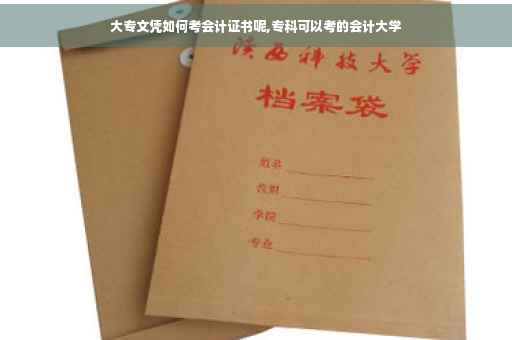 大专文凭如何考会计证书呢,专科可以考的会计大学
陕西科技大学
档案袋
姓名
学院
专业